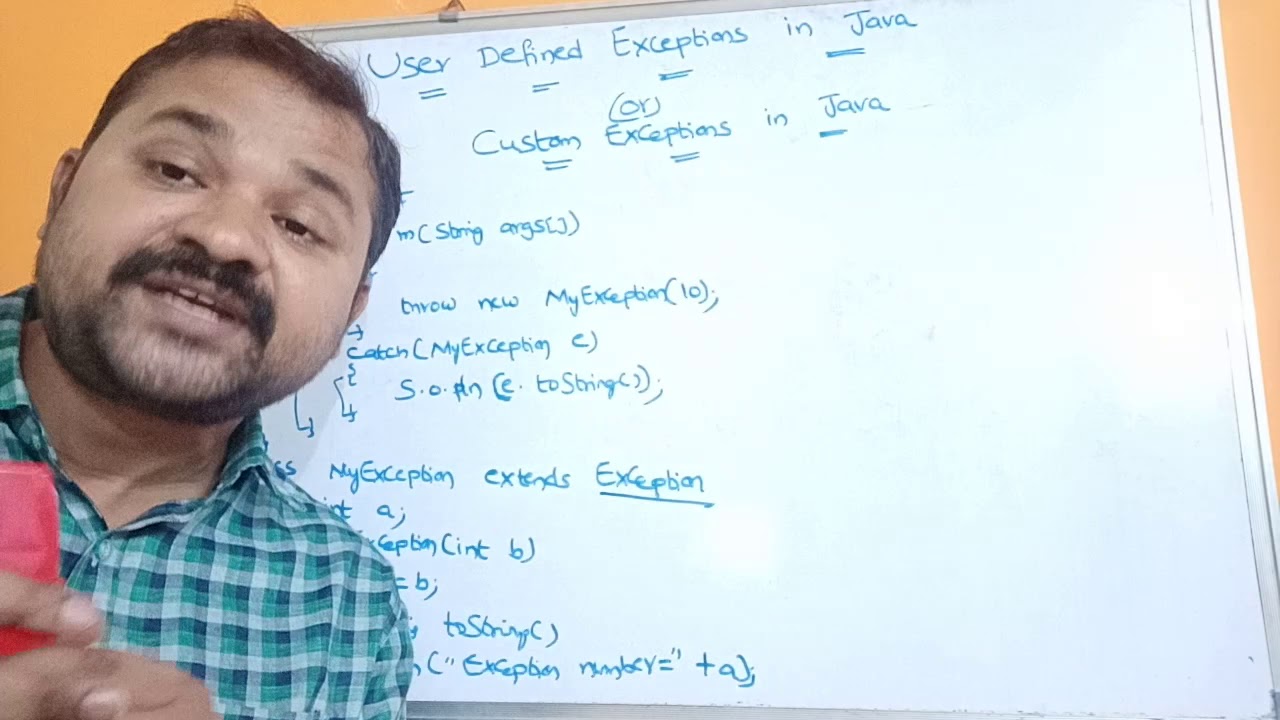 User Defined Exceptions in Java
(or)
Custom Exceptions in Java
m(String args[])
throw new MyException(10);
}
catch(MyException e)
{
S.o.pln(e.toString());
}
}
ss MyException extends Exception
int a;
xception(int b)
=b;
toString()
("Exception number=" +a);